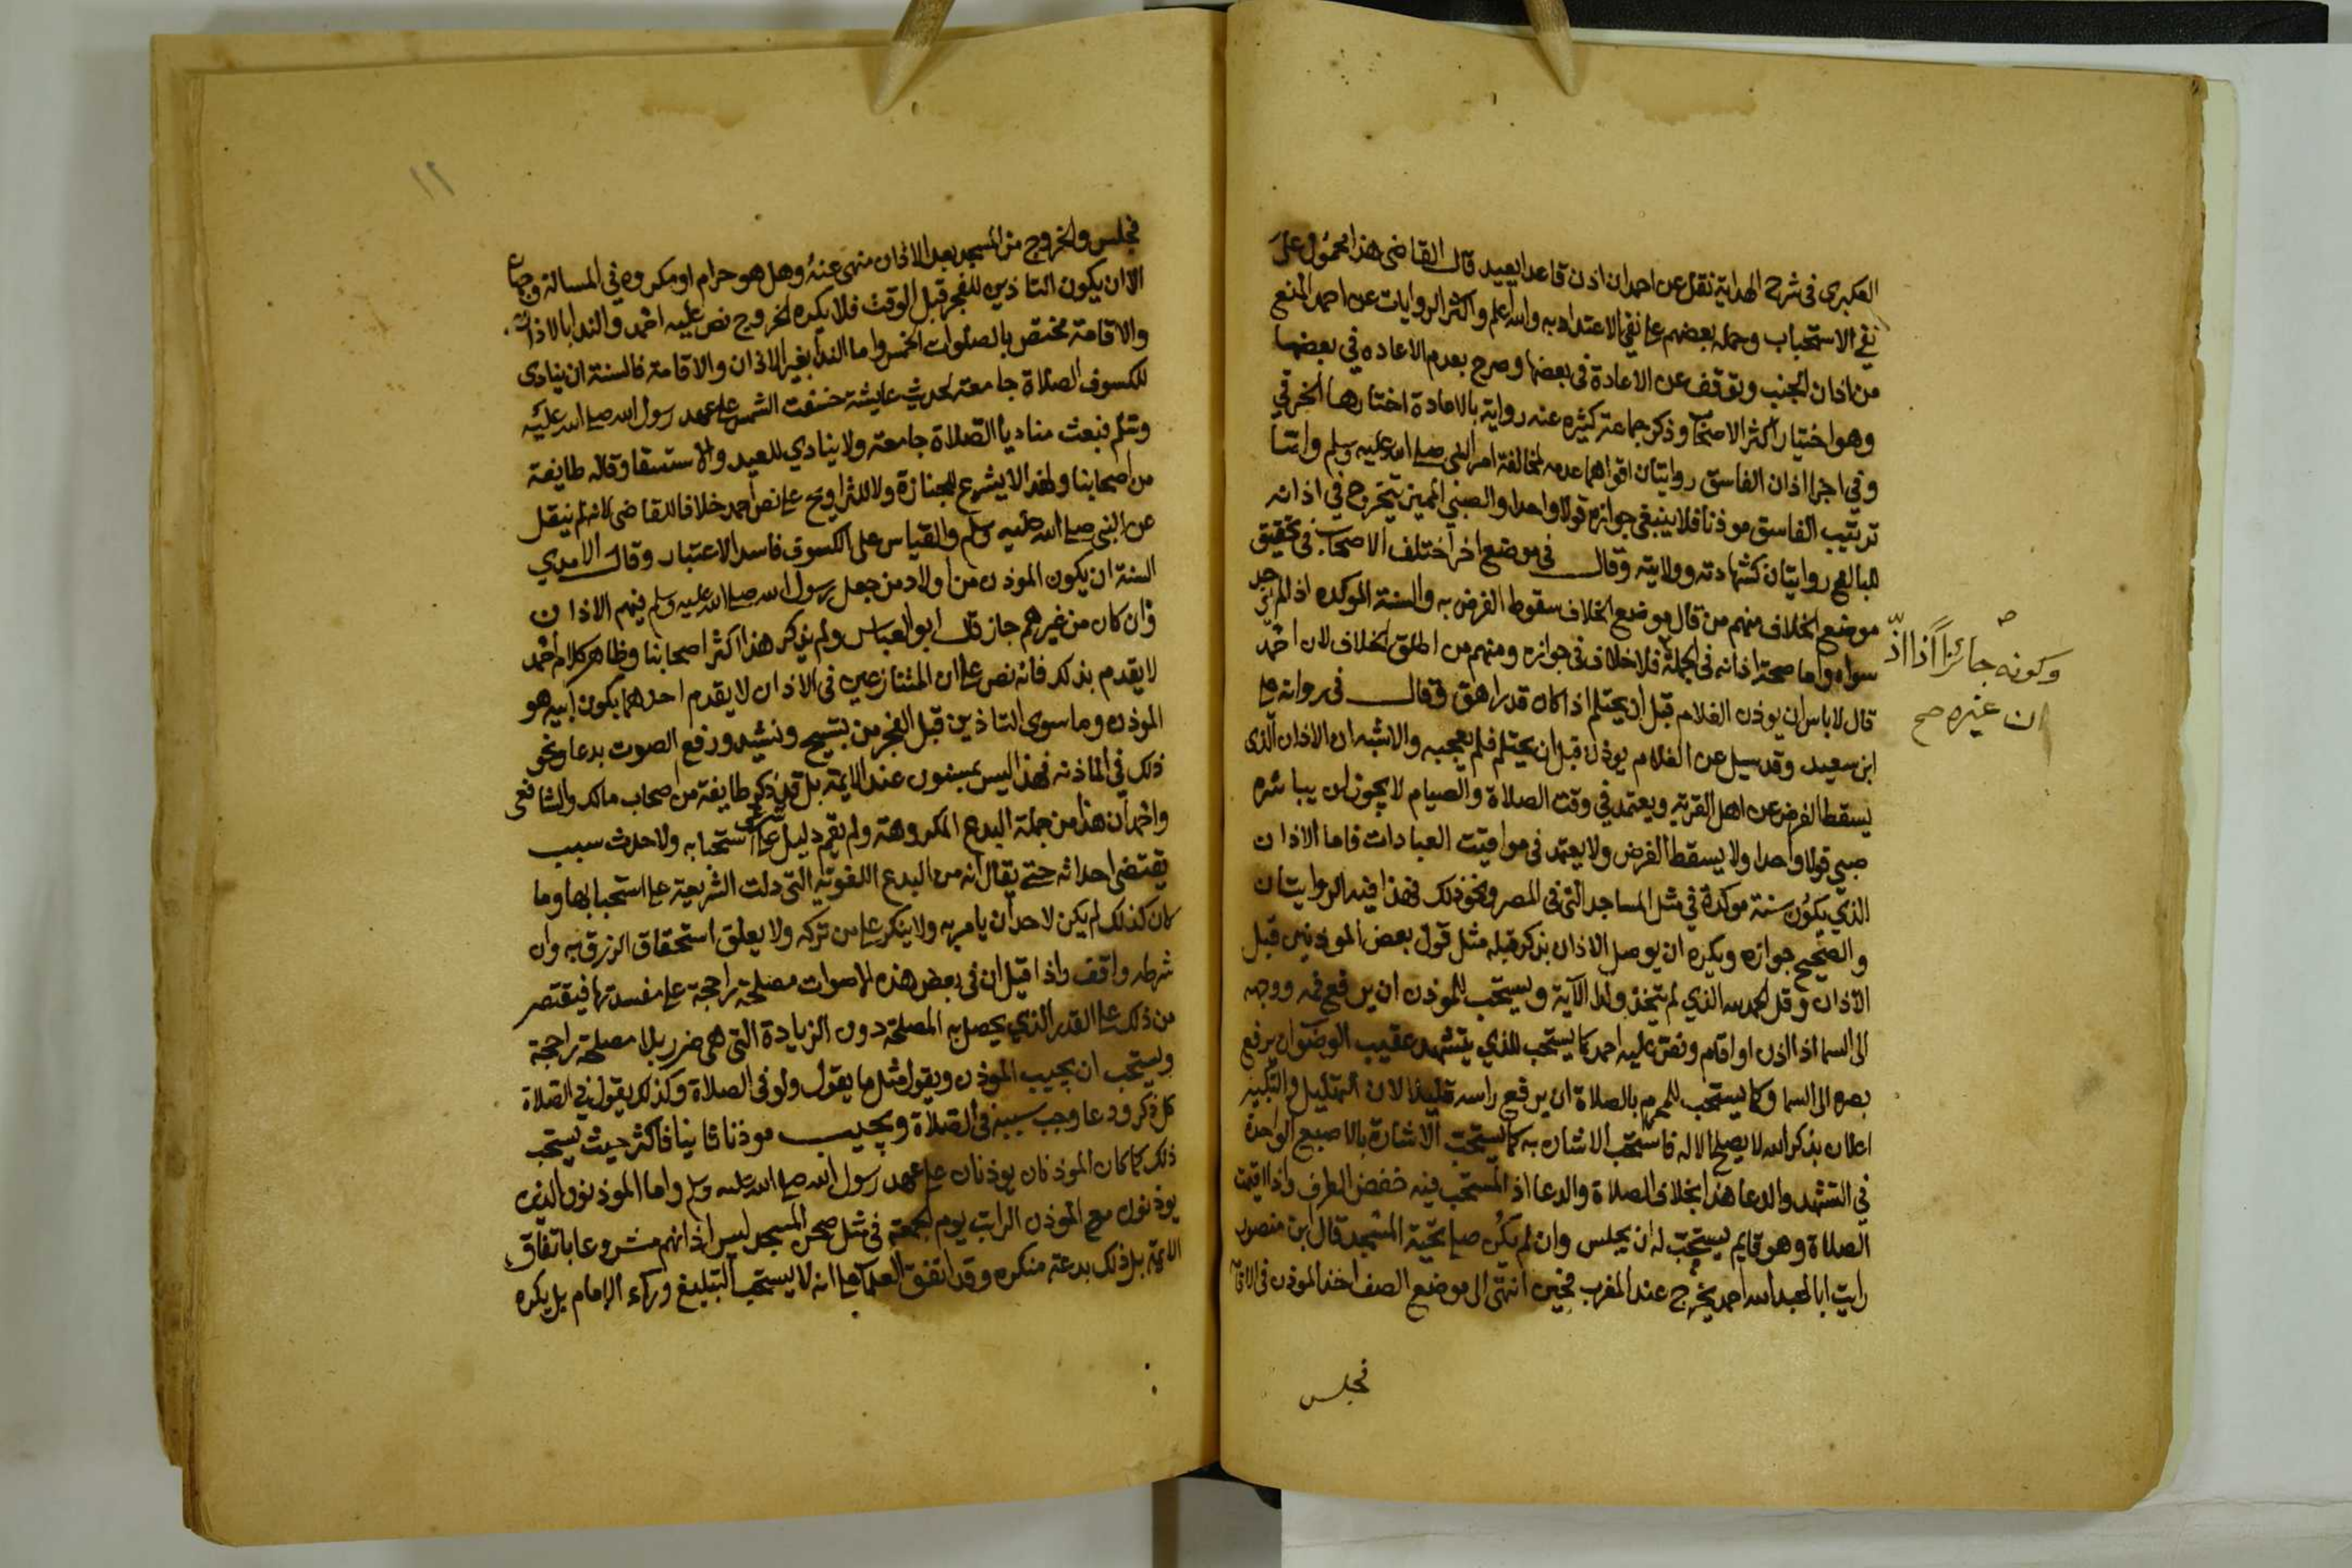 العكبرى فى شرح الهداية نقل عن احمد ان اذن قاعدا يعيد قال القاضى هذا محمول على
نفي الاستحباب وحمله بعضهم على نفي الاعتداد به والله اعلم واكثر الروايات عن احمد المنع
من اذان الجنب وتوقف عن الاعادة فى بعضها وصرح بعدم الاعاده في بعضها
وهو اختيار اكثر الاصحاب وذكر جماعة كثيره عنه رواية بالاعادة اختارها الخرقي
وفي اجزا اذان الفاسق روايتان اقواهما عدمه لمخالفة امر النبي صلى الله عليه وسلم واما
ترتيب الفاسق موذنا فلا ينبغي جوازه قولا واحدا والصبي المميز يتخرج في اذانه
للبالغ روايتان كشهادته وولايته وقال فى موضع اخر اختلف الاصحاب فى تحقيق
موضع الخلاف منهم من قال موضع الخلاف سقوط الفرض به والسنة الموكده اذا لم يوجد
سواه واما صحة اذانه فى الجملة فلا خلاف فى جوازه ومنهم من اطلق الخلاف لان احمد
وكونه جائزاً اذا اذّ
ن غيره صح
قال لا باس ان يوذن الغلام قبل ان يحتلم اذا كان قد راهق وقال فى رواية على
ابن سعيد وقد سيل عن الغلام يوذن قبل ان يحتلم فلم يعجبه والاشبه ان الاذان الذى
يسقط الفرض عن اهل القرية ويعتمد في وقت الصلاة والصيام لا يجوز ان يباشره
صبي قولا واحدا ولا يسقط الفرض ولا يعتمد فى مواقيت العبادات فاما الاذان
الذي يكون سنة موكدة في مثل المساجد التى فى المصر ونحو ذلك فهذا فيه الروايتان
والصحيح جوازه ويكره ان يوصل الاذان بذكر قبله مثل قول بعض الموذنين قبل
الاذان وقل الحمد لله الذي لم يتخذ ولدا الآية ويستحب للموذن ان يرفع فمه ووجهه
الى السما اذا اذن او اقام ونص عليه احمد كما يستحب للذي يتشهد عقيب الوضوء ان يرفع
بصره الى السما وكما يستحب للمحرم بالصلاة ان يرفع راسه قليلا لان التهليل والتكبير
اعلان بذكر الله لا يصلح الا له فاستحب الاشاره به كما يستحب الاشارة بالاصبع الواحدة
في التشهد والدعا هذا بخلاف الصلاة والدعا اذ المستحب فيه خفض الطرف واذا اقيمت
الصلاة وهو قايم يستحب له ان يجلس وان لم يكن صلى تحية المسجد قال ابن منصور
رايت ابا عبد الله احمد يخرج عند المغرب فحين انتهى الى موضع الصف اخذ الموذن فى الاقامة
فجلس
١٢
فجلس والخروج من المسجد بعد الاذان منهى عنه وهل هو حرام او مكروه في المسالة وجهان
الا ان يكون التاذين للفجر قبل الوقت فلا يكره الخروج نص عليه احمد والندا بالاذان
والاقامة مختص بالصلوات الخمس واما الندا بغير الاذان والاقامة فالسنة ان ينادى
للكسوف الصلاة جامعة لحديث عايشة خسفت الشمس على عهد رسول الله صلى الله عليه
وسلم فبعث مناديا الصلاة جامعة ولا ينادي للعيد والاستسقا وقاله طايفة
من اصحابنا ولهذا لا يشرع للجنازة ولا للتراويح على نص احمد خلافا للقاضى لانه لم ينقل
عن النبي صلى الله عليه وسلم والقياس على الكسوف فاسد الاعتبار وقال الامدي
السنة ان يكون الموذن من اولاد من جعل رسول الله صلى الله عليه وسلم فيهم الاذان
وان كان من غيرهم جاز قال ابو العباس ولم يذكر هذا اكثر اصحابنا وظاهر كلام احمد
لا يقدم بذلك فانه نص على ان المتنازعين فى الاذان لا يقدم احدهما بكون ابيه هو
الموذن وما سوى التاذين قبل الفجر من تسبيح ونشيد ورفع الصوت بدعا ونحو
ذلك في الماذنه فهذا ليس بمسنون عند الايمة بل قد ذكر طايفة من اصحاب مالك والشافعى
واحمد ان هذا من جملة البدع المكروهة ولم يقم دليل على استحبابه ولا حدث سبب
يقتضى احداثه حتى يقال انه من البدع اللغوية التى دلت الشريعة على استحبابها وما
كان كذلك لم يكن لاحد ان يامر به ولا ينكر على من تركه ولا يعلق استحقاق الرزق به وان
شرطه واقف واذا قيل ان فى بعض هذه الاصوات مصلحة راجحة على مفسدتها فيقتصر
من ذلك على القدر الذي يحصل به المصلحة دون الزيادة التى هى ضرر بلا مصلحة راجحة
ويستحب ان يجيب الموذن ويقول مثل ما يقول ولو فى الصلاة وكذلك يقول في الصلاة
كل ذكر ودعا وجب سببه فى الصلاة ويجيب موذنا ثانيا فاكثر حيث يستحب
ذلك كما كان الموذنان يوذنان على عهد رسول الله صلى الله عليه وسلم واما الموذنون الذين
يوذنون مع الموذن الراتب يوم الجمعة فى مثل صحن المسجد ليس اذانهم مشروعا باتفاق
الايمة بل ذلك بدعة منكره وقد اتفق العلما على انه لا يستحب التبليغ وراء الامام بل يكره